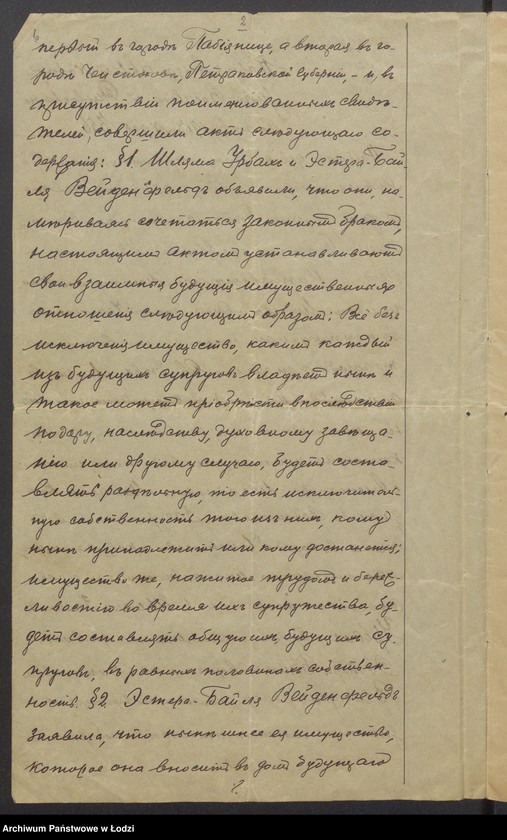 2
первый въ городѣ Пабіянице, а вторая въ го-
родѣ Ченстоховѣ, Петраковской Губерніи, - и, въ
присутствіи поименованныхъ свидѣ-
телей, совершили актъ слѣдующаго со-
держанія: §1. Шляма Урбахъ и Эстера-Бай-
ля Вейденфельдъ объявили, что они, на-
мѣриваясь сочетаться законнымъ бракомъ,
настоящимъ актомъ устанавливаютъ
свои взаимныя будущія имущественныя
отношенія слѣдующимъ образомъ: Всё безъ
исключенія имущество, какимъ каждый
изъ будущихъ супруговъ владѣетъ нынѣ и
такое можетъ пріобрѣсти впослѣдствіи
по дару, наслѣдству, духовному завѣща-
нію или другому случаю, будетъ соста-
влять раздѣльную, то есть исключитель-
ную собственность того изъ нихъ, кому
нынѣ принадлежитъ или кому достанется;
имущество же, нажитое трудомъ и береж-
ливостію во время ихъ супружества, бу-
детъ составлять общую ихъ, будущихъ су-
пруговъ, въ равныхъ половинахъ собствен-
ность. §2. Эстера-Байля Вейденфельдъ
заявила, что нынѣшнее ея имущество,
которое она вноситъ въ домъ будущаго
Archiwum Państwowe w Łodzi